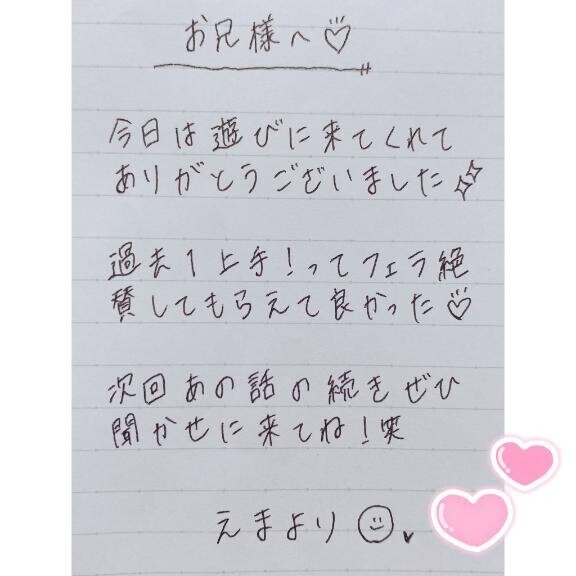 お兄様へ♡
今日は遊びに来てくれて
ありがとうございました✨
過去1上手!ってフェラ絶
賛してもらえて良かった♡
次回あの話の続きぜひ
聞かせに来てね!笑
えまより☺